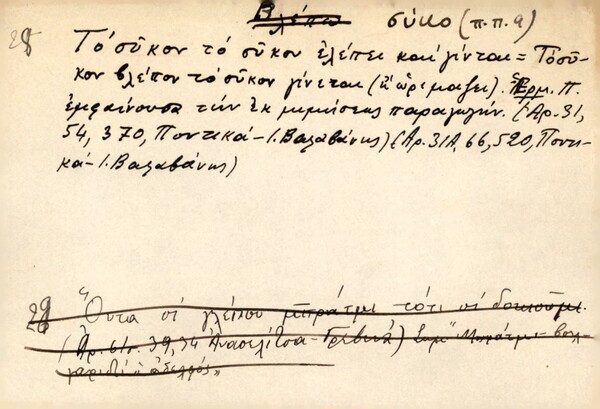 Βλέπω σύκο (π.π.α)
28 Τό σῦκον τό σῦκον ἐλέπει καί γίνται = Τό σῦ-
κον βλέπον τό σῦκον γίνεται (ἤ ὡριμάζει). Ἑρμ. Π.
ἐμφαίνουσα τήν ἐκ μιμήσεως παραγωγήν. (Ἀρ. 31,
54, 370, Ποντικά - Ι. Βαλαβάνης) (Ἀρ. 31Α, 66, 520, Ποντι-
κά - Ι. Βαλαβάνης)
Ὅντα σί γλέπου τότι σί
39, 34 Ἀνασέλιτσα - Γρεβενά)
ἤ ἀδελφός "